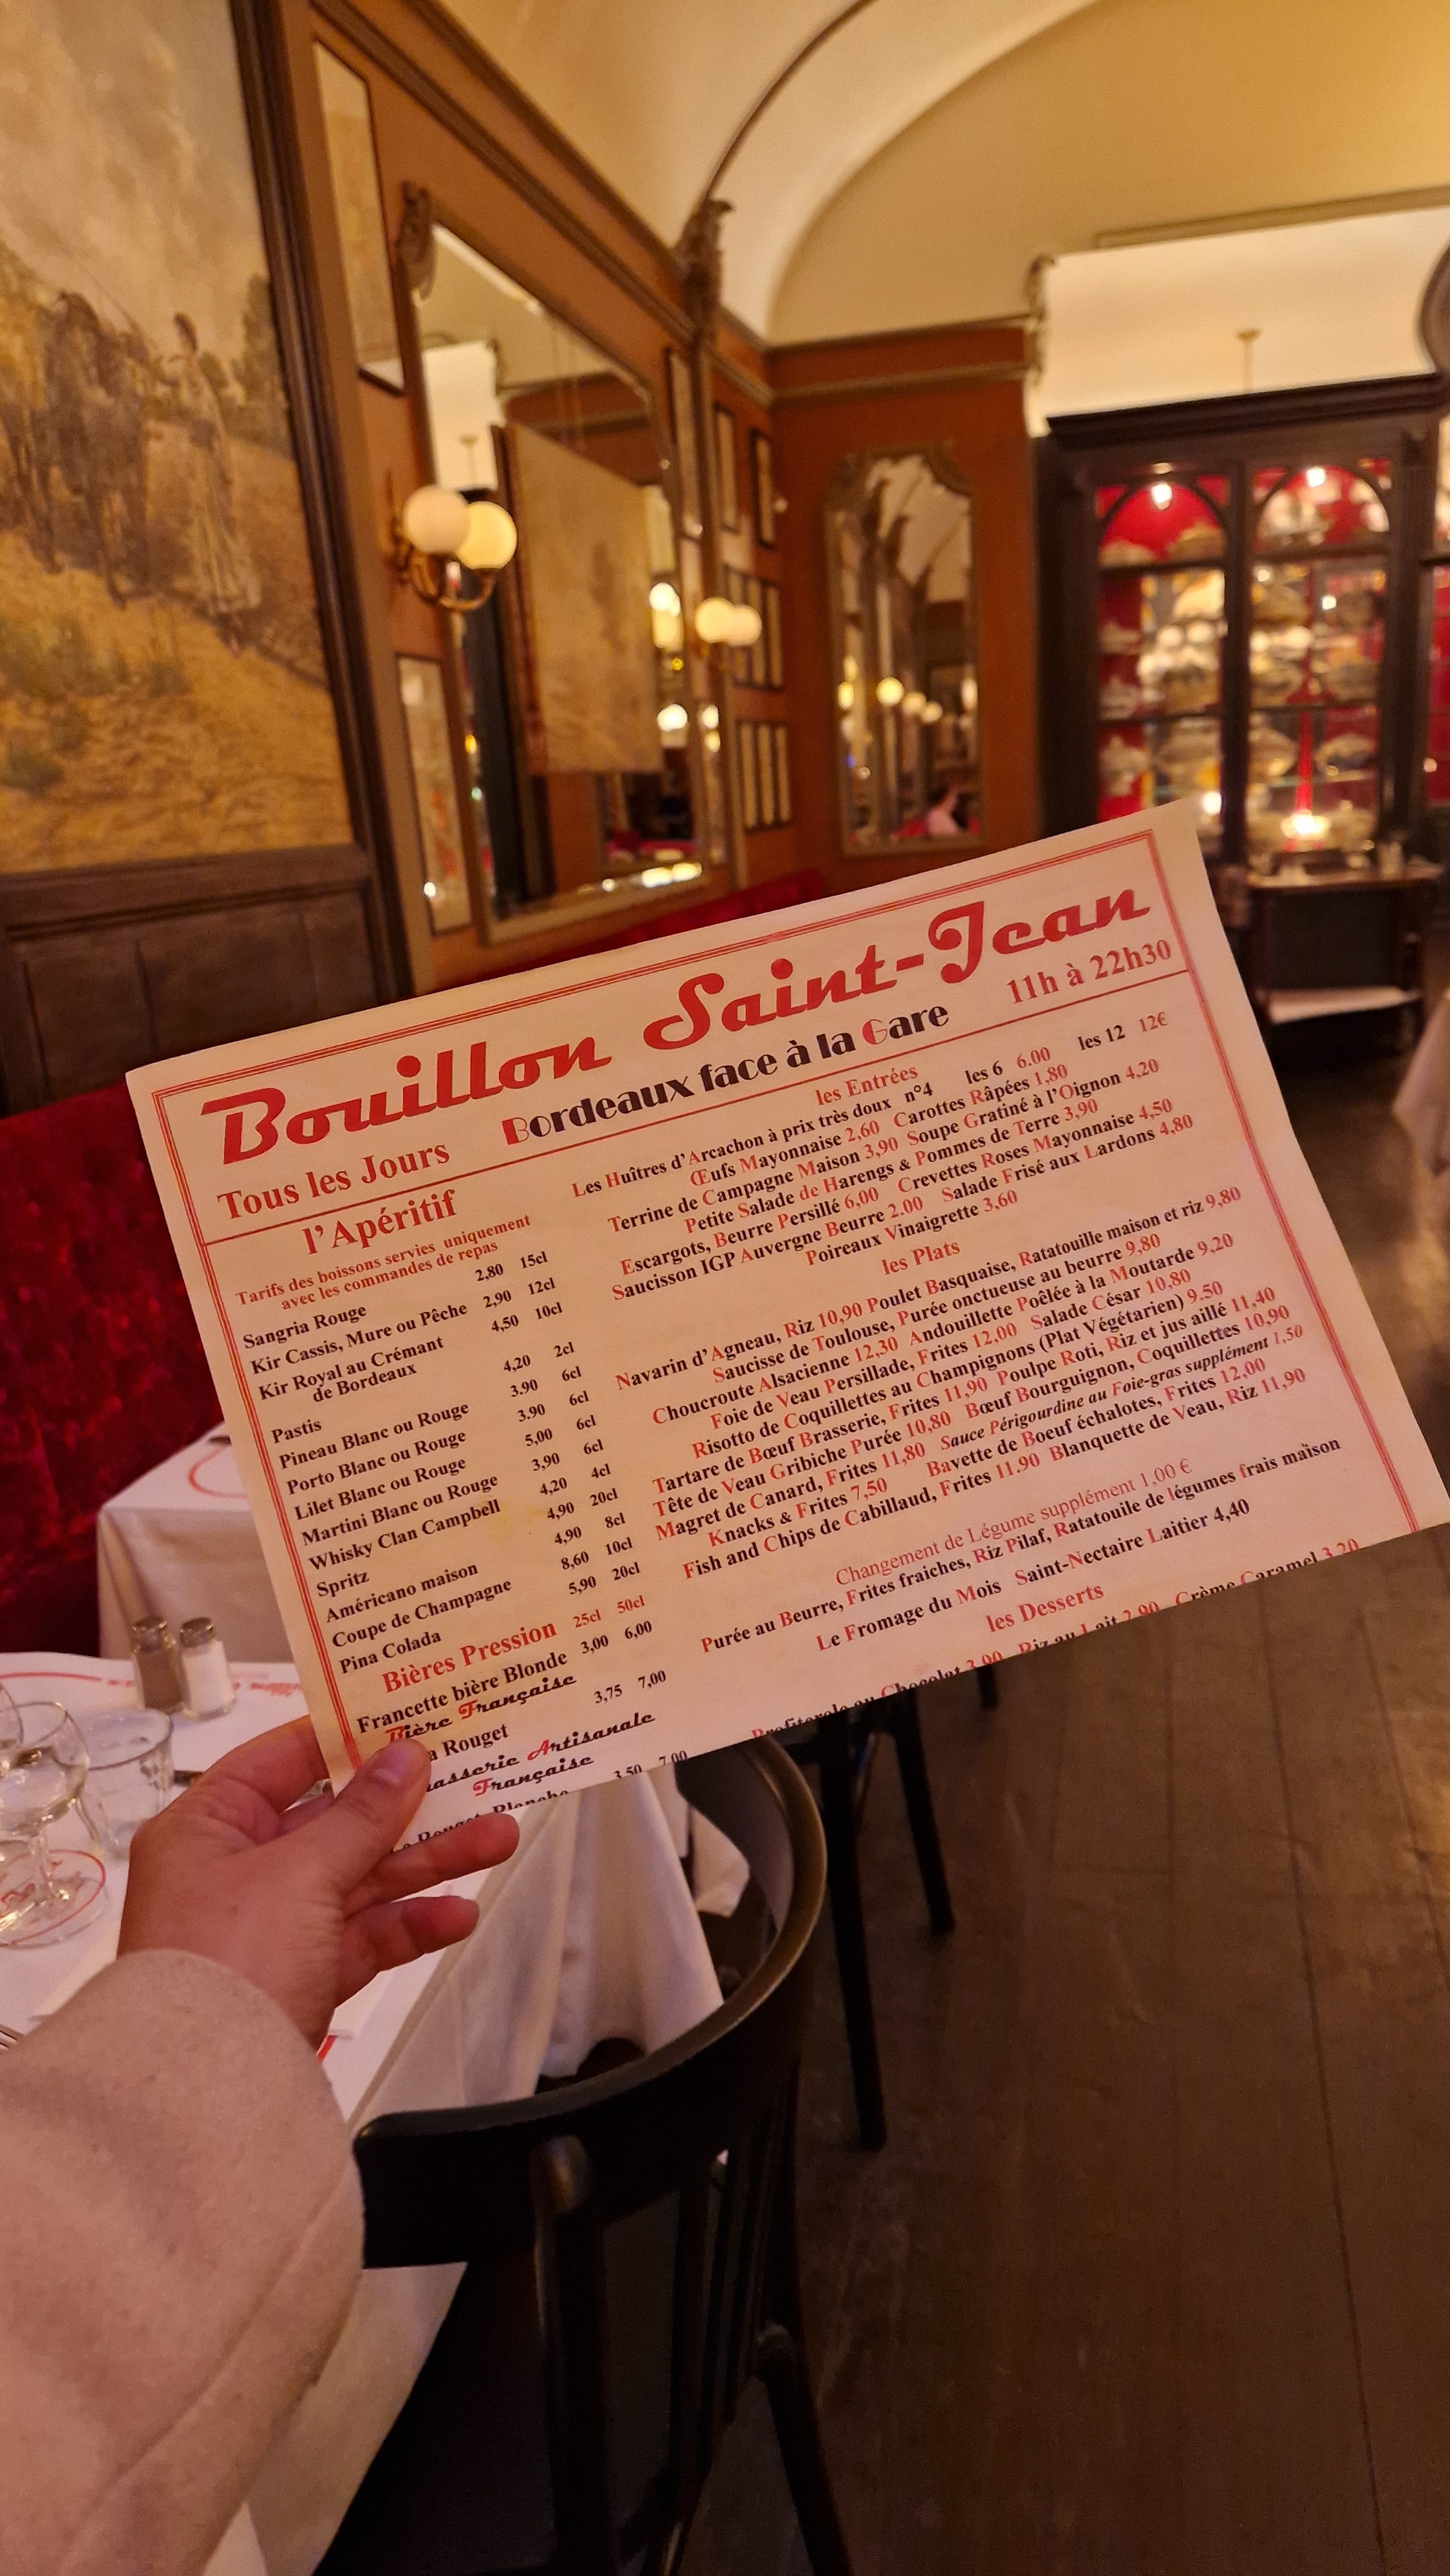 Bouillon Saint-Jean
Tous les Jours Bordeaux face à la Gare 11h à 22h30
l'Apéritif
Tarifs des boissons servies uniquement
avec les commandes de repas
Sangria Rouge 2,80 15cl
Kir Cassis, Mure ou Pêche 2,90 12cl
Kir Royal au Crémant 4,50 10cl
de Bordeaux
Pastis 4,20 2cl
Pineau Blanc ou Rouge 3.90 6cl
Porto Blanc ou Rouge 3.90 6cl
Lilet Blanc ou Rouge 5,00 6cl
Martini Blanc ou Rouge 3,90 6cl
Whisky Clan Campbell 4,20 4cl
Spritz 4,90 20cl
Américano maison 4,90 8cl
Coupe de Champagne 8,60 10cl
Pina Colada 5,90 20cl
Bières Pression 25cl 50cl
Francette bière Blonde 3,00 6,00
Bière Française
a Rouget 3,75 7,00
asserie Artisanale
Française
Rouget Blanche 3,50 7,00
les Entrées
Les Huîtres d'Arcachon à prix très doux n°4 les 6 6.00 les 12 12€
Œufs Mayonnaise 2,60 Carottes Râpées 1,80
Terrine de Campagne Maison 3,90 Soupe Gratiné à l'Oignon 4,20
Petite Salade de Harengs & Pommes de Terre 3,90
Escargots, Beurre Persillé 6,00 Crevettes Roses Mayonnaise 4,50
Saucisson IGP Auvergne Beurre 2.00 Salade Frisé aux Lardons 4,80
Poireaux Vinaigrette 3,60
les Plats
Navarin d'Agneau, Riz 10,90 Poulet Basquaise, Ratatouille maison et riz 9,80
Saucisse de Toulouse, Purée onctueuse au beurre 9,80
Choucroute Alsacienne 12,30 Andouillette Poêlée à la Moutarde 9,20
Foie de Veau Persillade, Frites 12,00 Salade César 10,80
Risotto de Coquillettes au Champignons (Plat Végétarien) 9.50
Tartare de Bœuf Brasserie, Frites 11,90 Poulpe Roti, Riz et jus aillé 11,40
Tête de Veau Gribiche Purée 10,80 Bœuf Bourguignon, Coquillettes 10,90
Magret de Canard, Frites 11,80 Sauce Périgourdine au Foie-gras supplément 1,50
Knacks & Frites 7,50 Bavette de Boeuf échalotes, Frites 12,00
Fish and Chips de Cabillaud, Frites 11.90 Blanquette de Veau, Riz 11,90
Changement de Légume supplément 1,00 €
Purée au Beurre, Frites fraiches, Riz Pilaf, Ratatouile de légumes frais maison
Le Fromage du Mois Saint-Nectaire Laitier 4,40
les Desserts
Profiterole au Chocolat 3,90 Riz au Lait 2,90 Crème Caramel 3,20